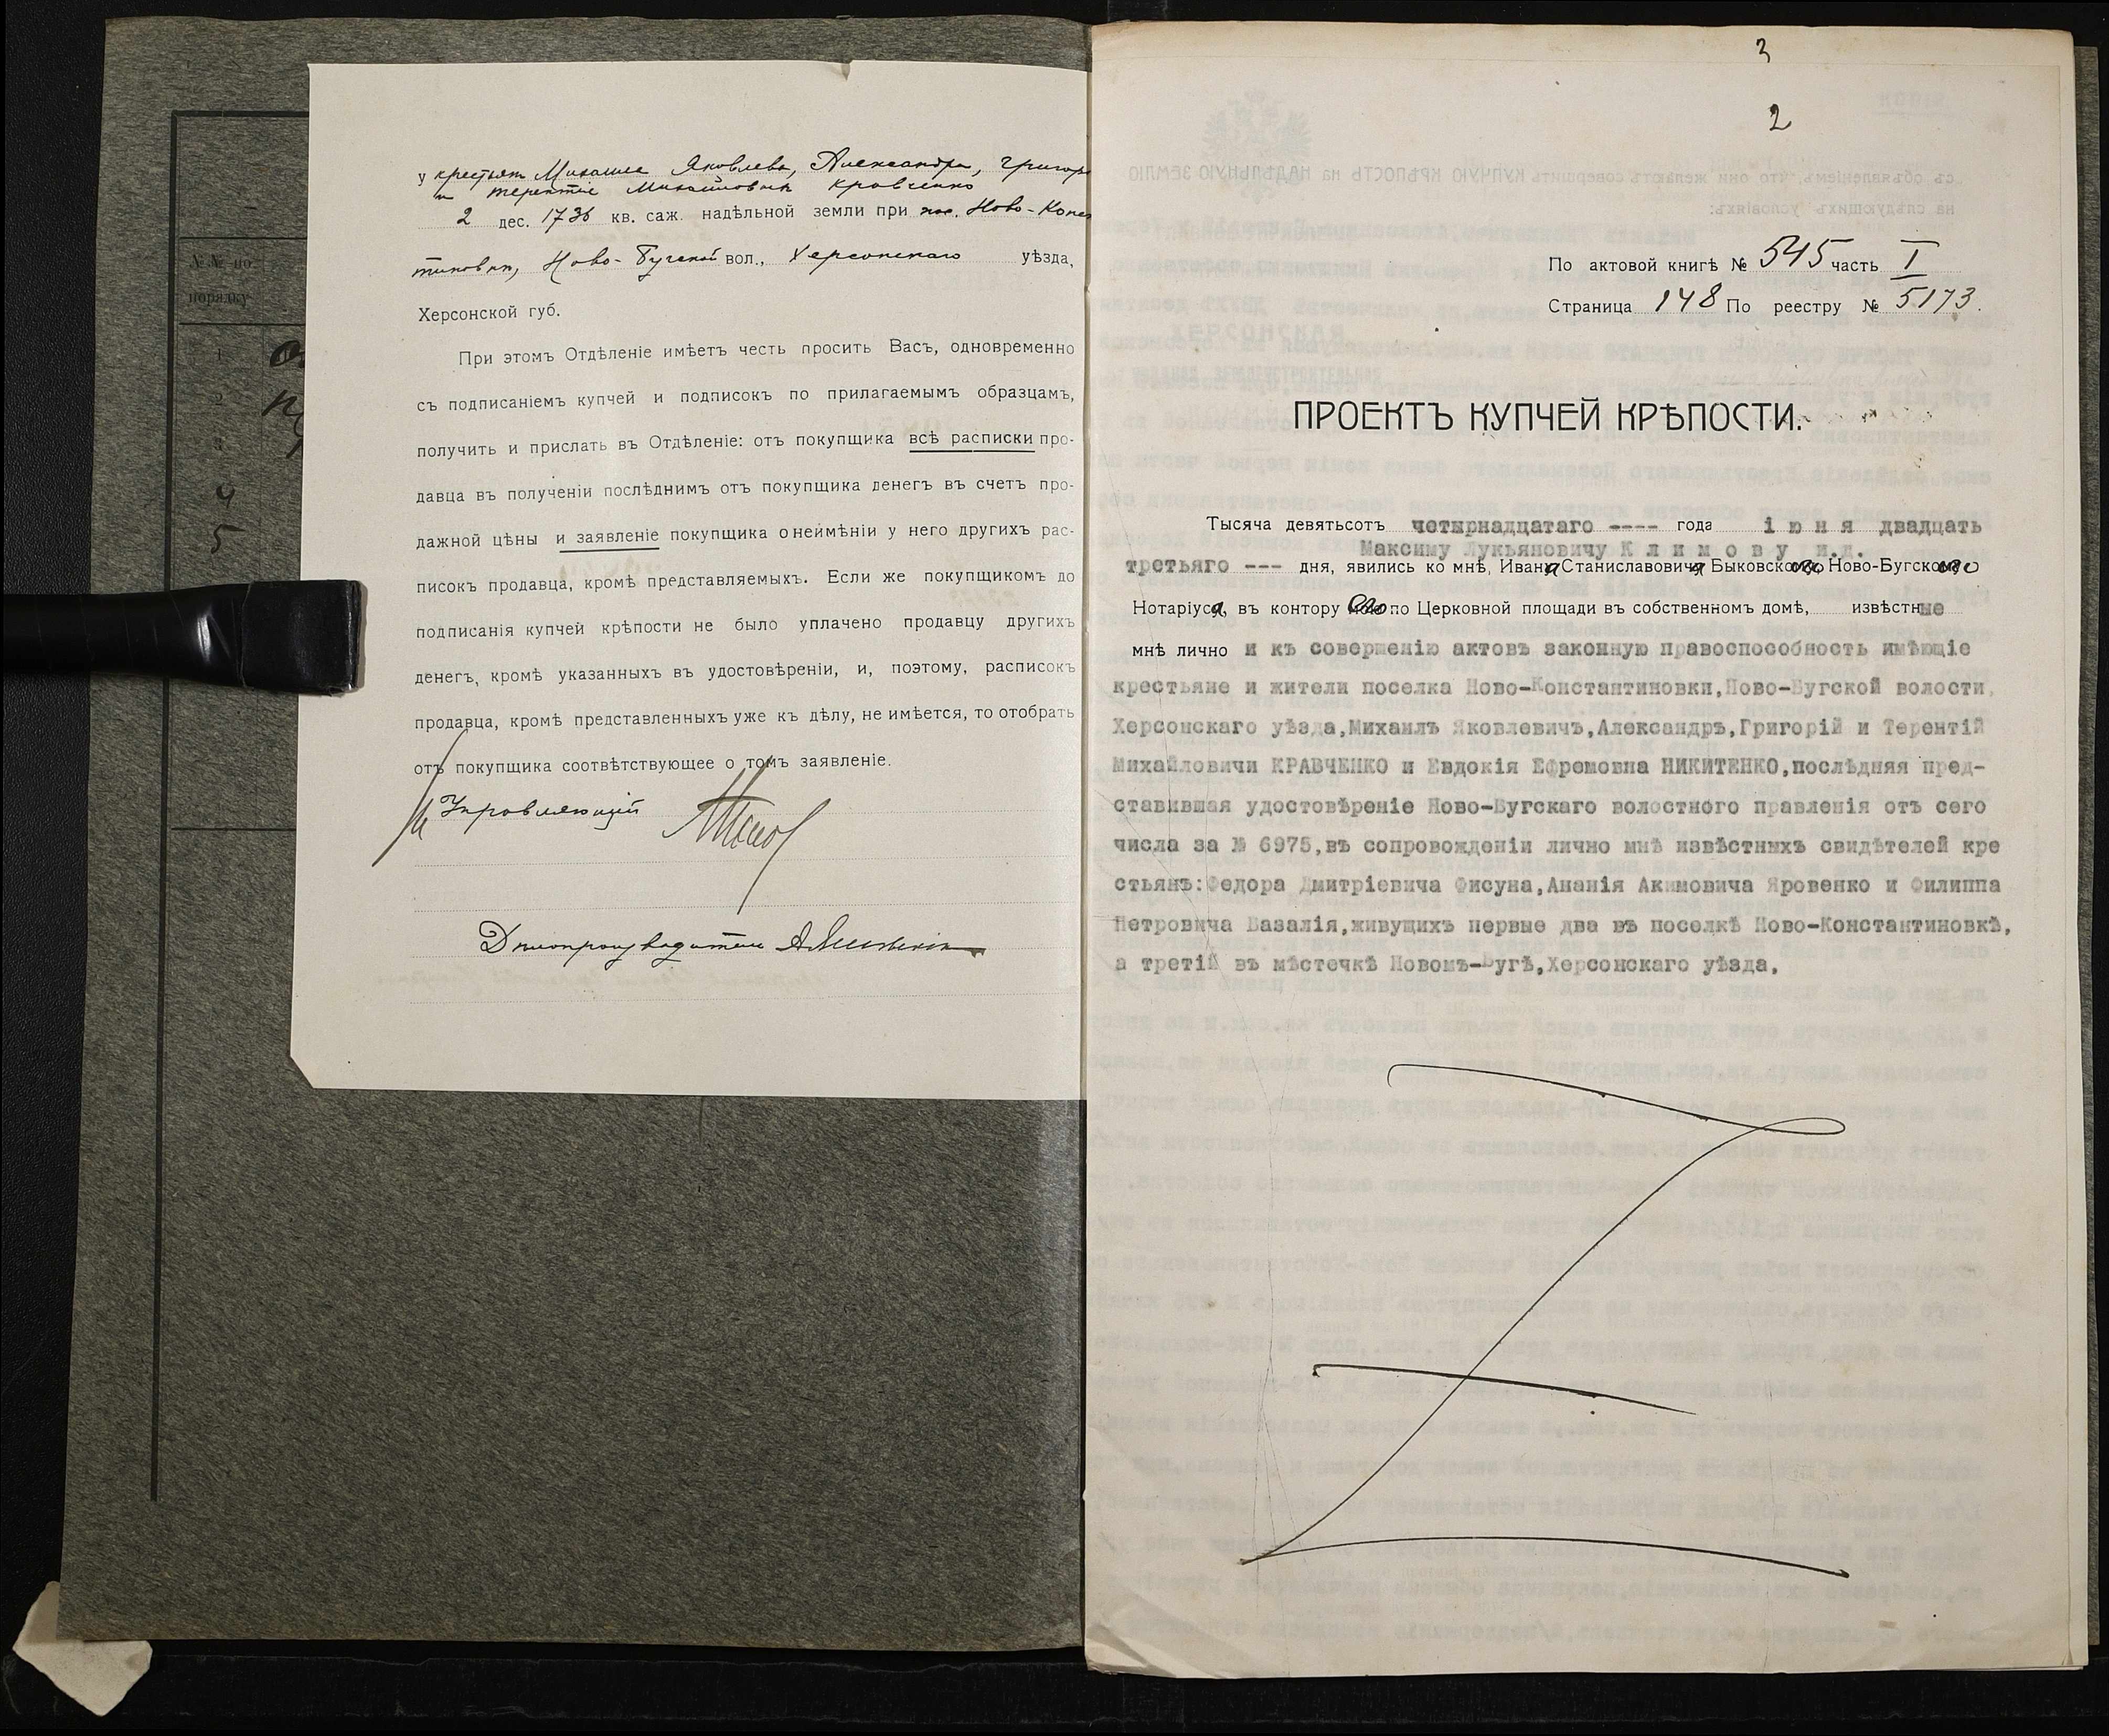 №№ по
порядку
1
2
3
4
5
у крестьян Михаила Яковлева, Александра, Григор
и Терентiе Михайловых Кравченко
2 дес. 1736 кв. саж. надѣльной земли при пос. Ново-Конс
тиновки, Ново-Бугской вол., Херсонскаго уѣзда,
Херсонской губ.
При этомъ Отдѣленіе имѣетъ честь просить Васъ, одновременно
съ подписаніемъ купчей и подписокъ по прилагаемымъ образцамъ,
получить и прислать въ Отдѣленіе: отъ покупщика всѣ расписки про-
давца въ полученіи послѣднимъ отъ покупщика денегъ въ счетъ про-
дажной цѣны и заявленіе покупщика о неймѣніи у него другихъ рас-
писокъ продавца, кромѣ представляемыхъ. Если же покупщикомъ до
подписанія купчей крѣпости не было уплачено продавцу другихъ
денегъ, кромѣ указанныхъ въ удостовѣреніи, и, поэтому, расписокъ
продавца, кромѣ представленныхъ уже къ дѣлу, не имѣется, то отобрать
отъ покупщика соотвѣтствующее о томъ заявленіе.
Управляющій
Дѣлопроизводитель
3
2
По актовой книгѣ № 545 часть I
Страница 148 По реестру № 5173.
ПРОЕКТЪ КУПЧЕЙ КРѢПОСТИ.
Тысяча девятьсотъ четырнадцатаго ---- года іюня двадцать
Максиму Лукьяновичу Климову и.д.
третьяго --- дня, явились ко мнѣ, Ивана Станиславовича Быковскаго Ново-Бугскаго
Нотаріуса, въ контору его по Церковной площади въ собственномъ домѣ, извѣстные
мнѣ лично и къ совершенію актовъ законную правоспособность имѣющіе
крестьяне и жители поселка Ново-Константиновки, Ново-Бугской волости,
Херсонскаго уѣзда, Михаилъ Яковлевичъ, Александръ, Григорій и Терентій
Михайловичи КРАВЧЕНКО и Евдокія Ефремовна НИКИТЕНКО, послѣдняя пред-
ставившая удостовѣреніе Ново-Бугскаго волостного правленія отъ сего
числа за № 6975, въ сопровожденіи лично мнѣ извѣстныхъ свидѣтелей кре
стьянъ: Федора Дмитріевича Фисуна, Ананія Акимовича Яровенко и Филиппа
Петровича Базалія, живущихъ первые два въ поселкѣ Ново-Константиновкѣ,
а третій въ мѣстечкѣ Новомъ-Бугѣ, Херсонскаго уѣзда,